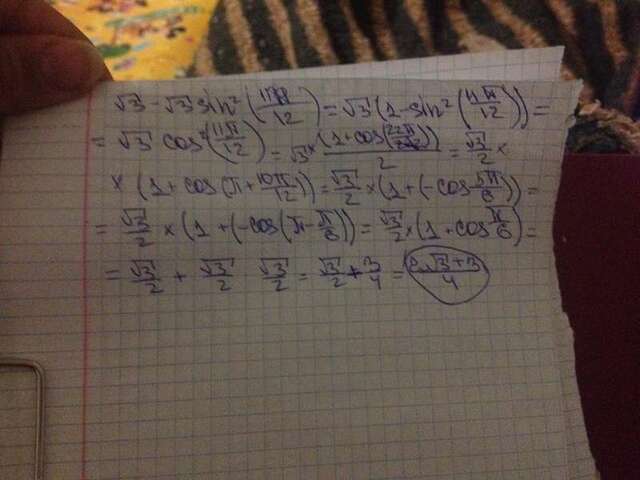 √3 - √3 sin²(11π/12) = √3(1 - sin²(11π/12)) =
= √3 cos²(11π/12) = √3 × (1 + cos(22π/12))/2 = √3/2 ×
× (1 + cos(π + 10π/12)) = √3/2 × (1 + (-cos 5π/6)) =
= √3/2 × (1 + (-cos(π - π/6))) = √3/2 × (1 + cos π/6) =
= √3/2 + √3/2 √3/2 = √3/2 + 3/4 = 2√3+3/4